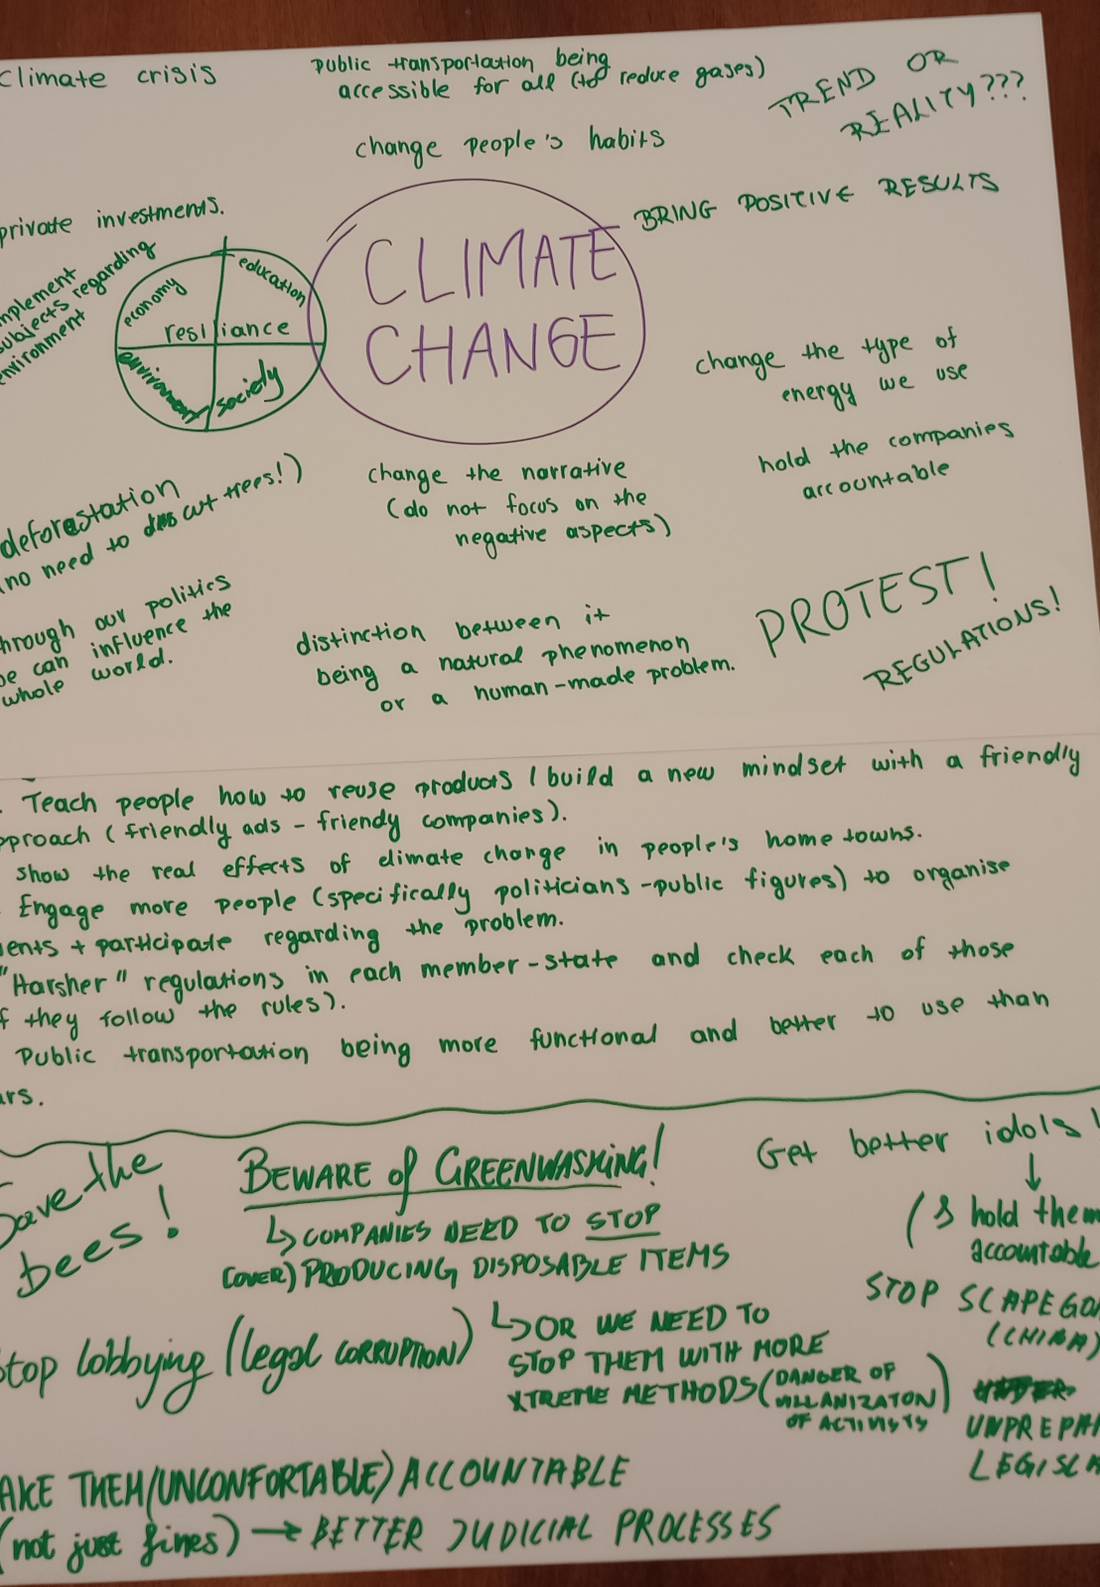 climate crisis
public transportation being
accessible for all (to reduce gases)
TREND OR
REALITY???
change people's habits
private investments.
BRING POSITIVE RESULTS
subjects regarding
environment
economy
education
resiliance
environment
society
CLIMATE
CHANGE
change the type of
energy we use
hold the companies
accountable
deforestation
(no need to cut trees!)
change the narrative
(do not focus on the
negative aspects)
our politics
can influence the
whole world.
distinction between it
being a natural phenomenon
or a human-made problem.
PROTEST!
REGULATIONS!
Teach people how to reuse products / build a new mindset with a friendly
(friendly ads - friendy companies).
show the real effects of climate change in people's home towns.
Engage more people (specifically politicians - public figures) to organise
+ participate regarding the problem.
"Harsher" regulations in each member-state and check each of those
they follow the rules).
Public transportation being more functional and better to use than
Save the
bees!
BEWARE of GREENWASHING!
↳ COMPANIES NEED TO STOP
(OVER) PRODUCING DISPOSABLE ITEMS
↳ OR WE NEED TO
STOP THEM WITH MORE
XTREME METHODS (DANGER OF
VILLANIZATON
OF ACTIVISTS)
Get better idols!
↓
(& hold them
accountable
STOP SCAPEGO
(CHINA)
UNPREPA
LEGISL
lobbying (legal CORRUPTION)
THEM (UNCONFORTABLE) ACCOUNTABLE
(not just fines) → BETTER JUDICIAL PROCESSES